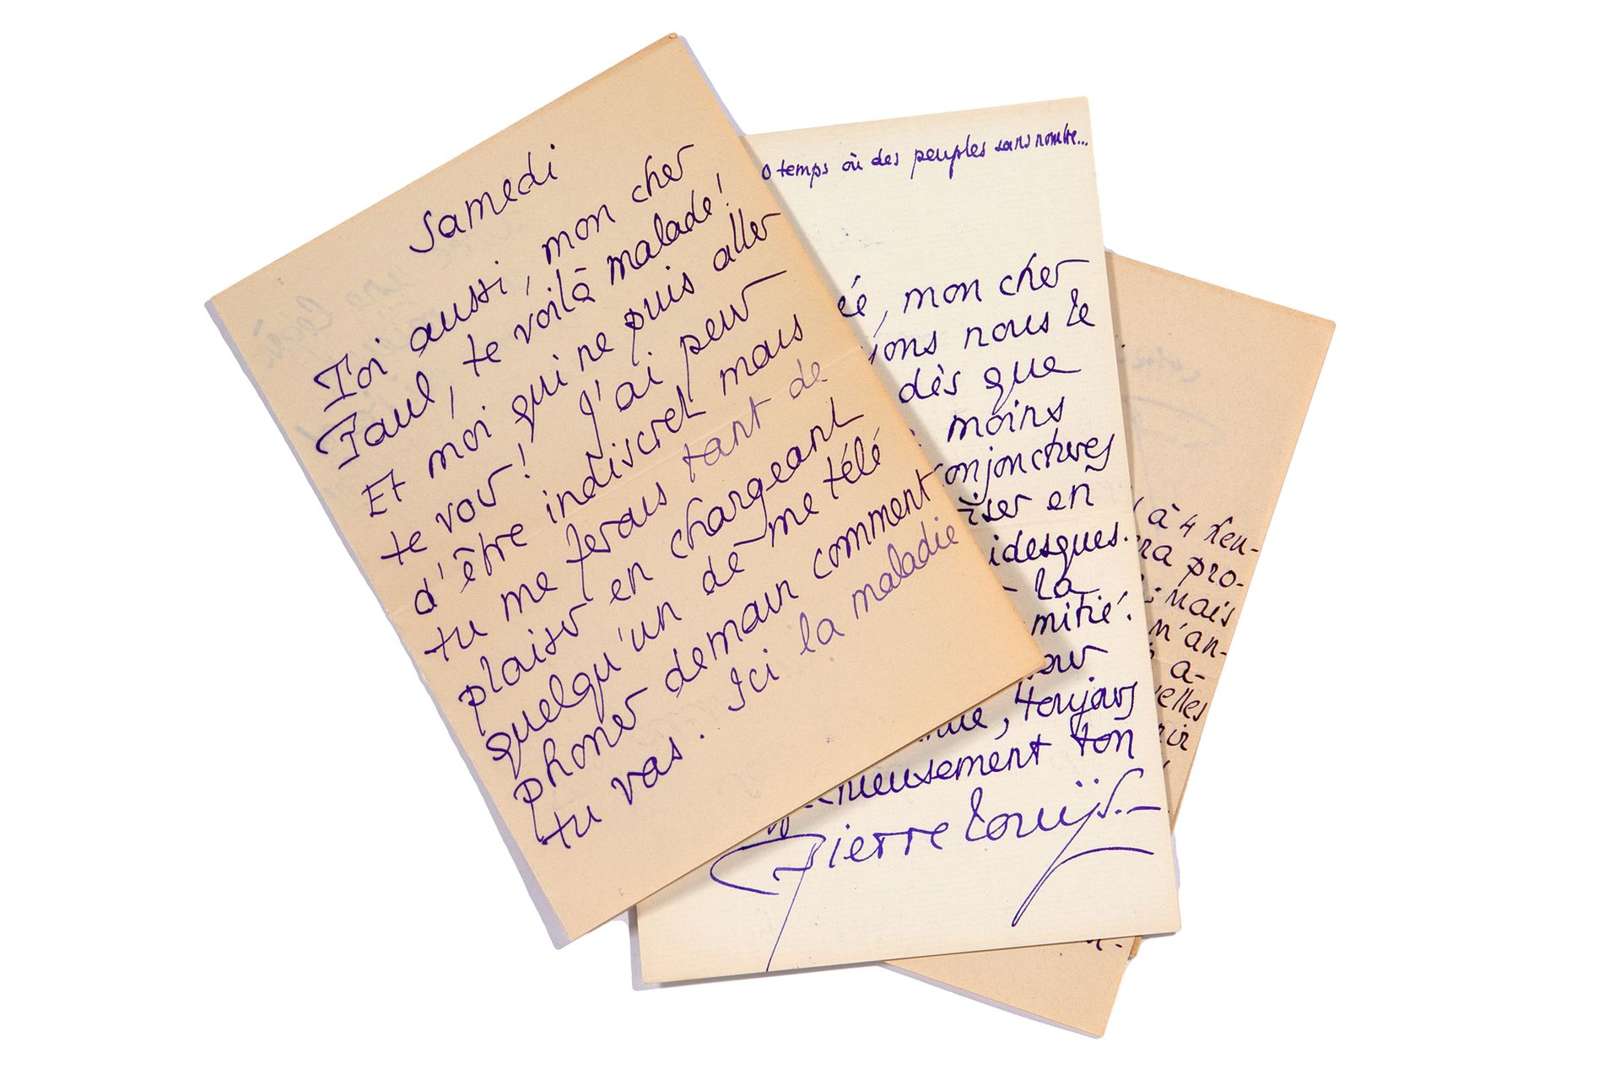 Samedi
Toi aussi, mon cher
Paul, te voilà malade!
Et moi qui ne puis aller
te voir! J'ai peur
d'être indiscret mais
tu me ferais tant de
plaisir en chargeant
quelqu'un de me télé
phoner demain comment
tu vas. Ici la maladie
O temps où des peuples sans nombre...
ée, mon cher
ions nous le
dès que
moins
onjonctures
iser en
idesques.
la
mitié!
our
toujours
ueusement ton
Pierre Louÿs.
à 4 heu-
ra pro-
Mais
n'an-
a-
elles
rir